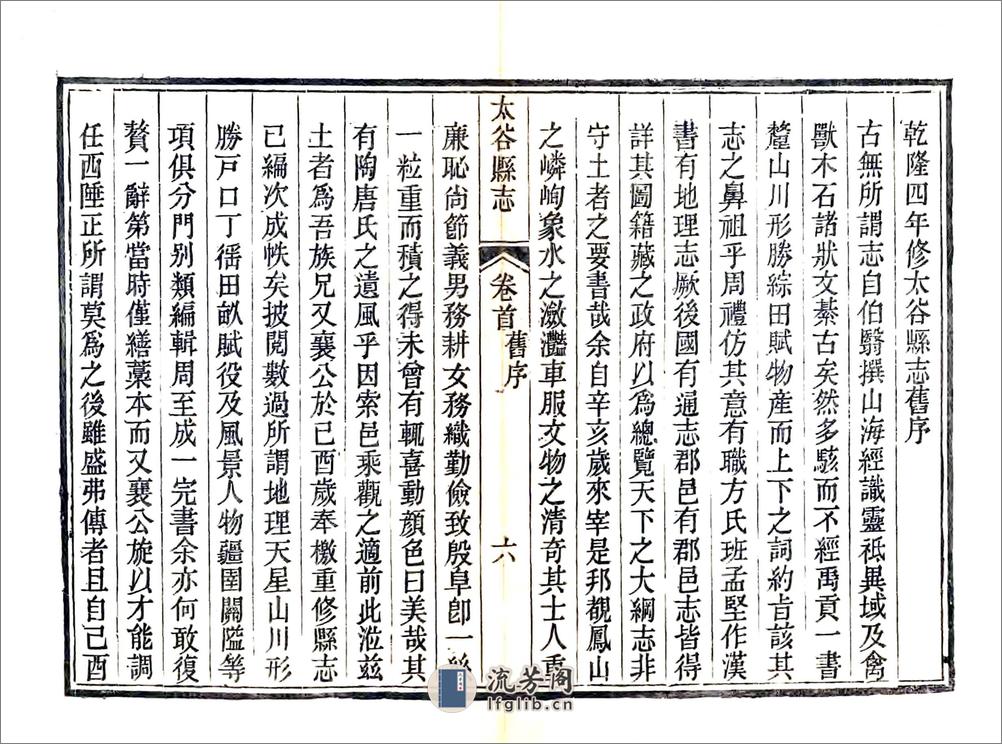 乾隆四年修太谷縣志舊序
古無所謂志自伯翳撰山海經識靈祇異域及禽
獸木石諸狀文綦古矣然多駭而不經禹貢一書
釐山川形勝綜田賦物産而上下之詞約旨該其
志之鼻祖乎周禮仿其意有職方氏班孟堅作漢
書有地理志厥後國有通志郡邑有郡邑志皆得
詳其圖籍藏之政府以爲總覽天下之大綱志非
守土者之要書哉余自辛亥歲來宰是邦覩鳳山
之嶙峋象水之瀲灩車服文物之清奇其士人重
太谷縣志
卷首
舊序
六
廉恥尚節義男務耕女務織勤儉致殷阜卽一絲
一粒重而積之得未曾有輒喜動顏色曰美哉其
有陶唐氏之遺風乎因索邑乘觀之適前此涖兹
土者爲吾族兄又襄公於己酉歲奉檄重修縣志
已編次成帙矣披閱數過所謂地理天星山川形
勝戸口丁徭田畝賦役及風景人物疆圉關隘等
項俱分門別類編輯周至成一完書余亦何敢復
贅一辭第當時僅繕藁本而又襄公旋以才能調
任西陲正所謂莫爲之後雖盛弗傳者且自己酉
流芳阁
lfglib.cn